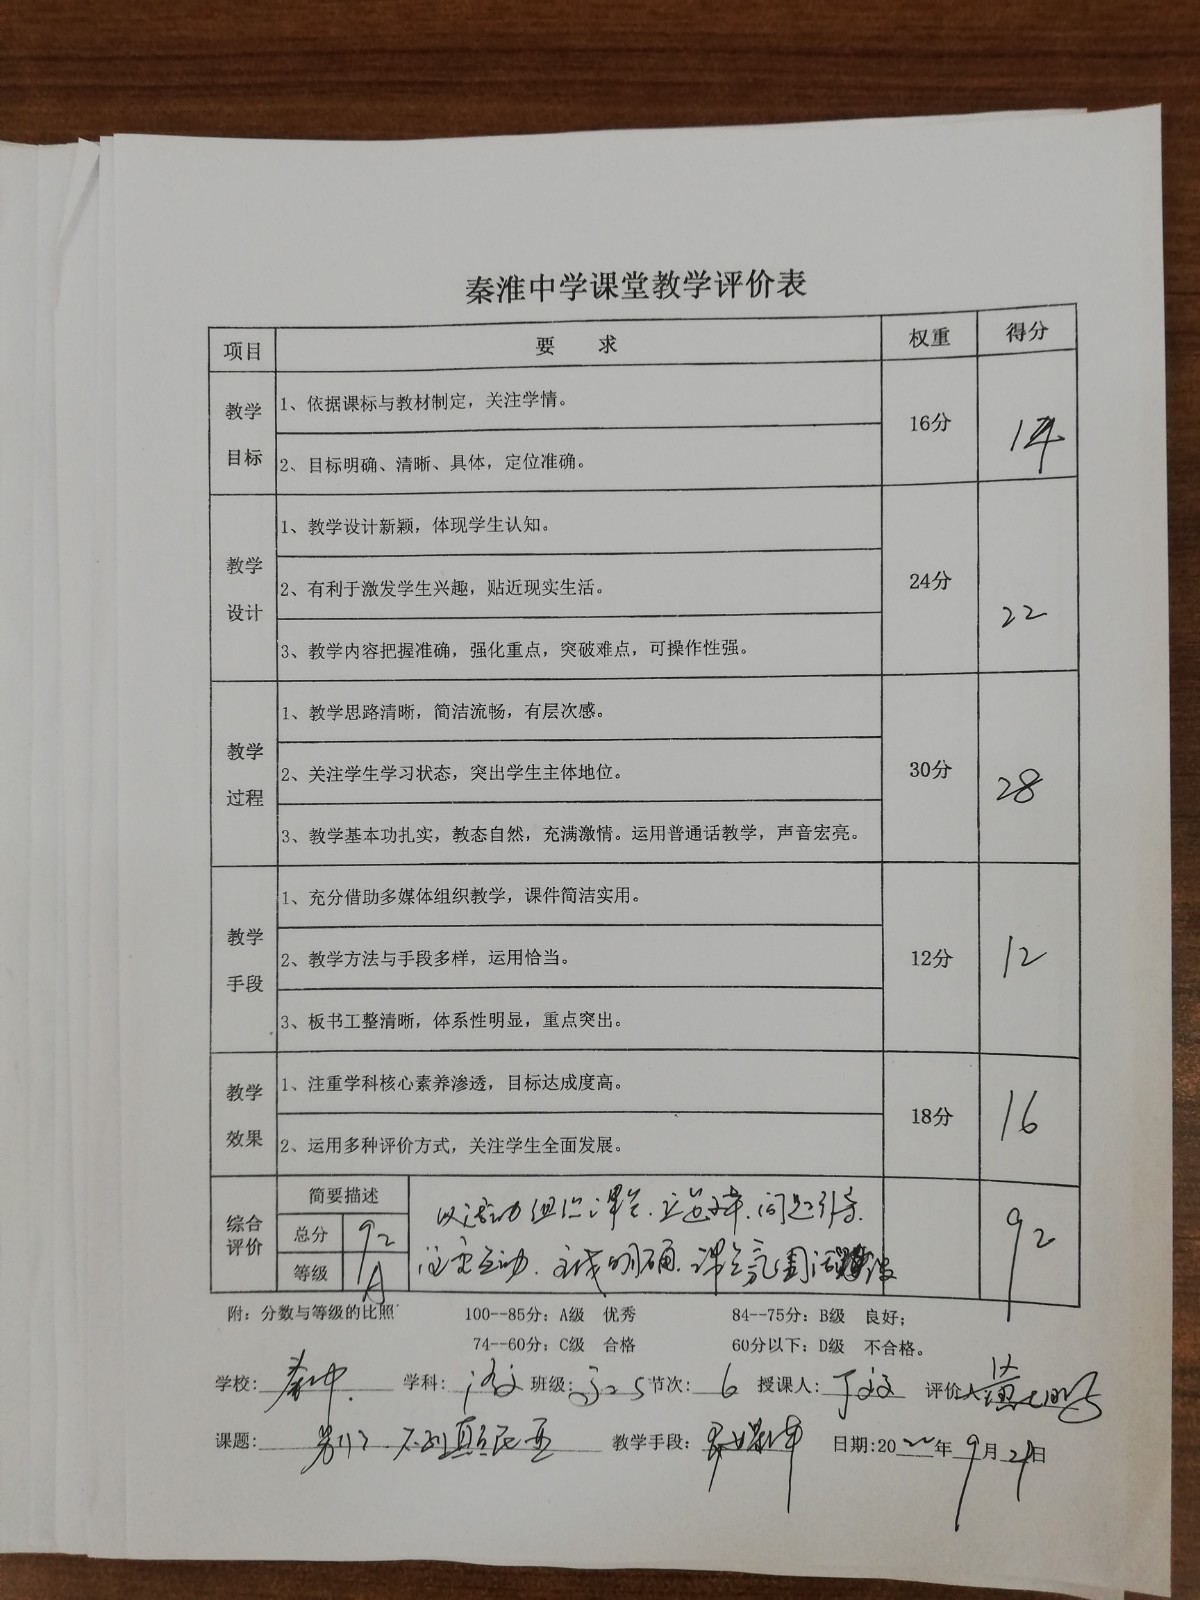 秦淮中学课堂教学评价表
项目 要 求 权重 得分
教学目标 1、依据课标与教材制定，关注学情。 16分 14
2、目标明确、清晰、具体，定位准确。
教学设计 1、教学设计新颖，体现学生认知。 24分 22
2、有利于激发学生兴趣，贴近现实生活。
3、教学内容把握准确，强化重点，突破难点，可操作性强。
教学过程 1、教学思路清晰，简洁流畅，有层次感。 30分 28
2、关注学生学习状态，突出学生主体地位。
3、教学基本功扎实，教态自然，充满激情。运用普通话教学，声音宏亮。
教学手段 1、充分借助多媒体组织教学，课件简洁实用。 12分 12
2、教学方法与手段多样，运用恰当。
3、板书工整清晰，体系性明显，重点突出。
教学效果 1、注重学科核心素养渗透，目标达成度高。 18分 16
2、运用多种评价方式，关注学生全面发展。
综合评价 简要描述 以活动组织课堂 问题引导 92
总分 92 注重互动 明确 课堂氛围
等级 A
附：分数与等级的比照 100--85分：A级 优秀 84--75分：B级 良好；
74--60分：C级 合格 60分以下：D级 不合格。
学校：秦中 学科：语文 班级：高二5 节次：6 授课人：丁文 评价人
课题：别了，不列颠尼亚 教学手段：多媒体 日期：2022年9月21日